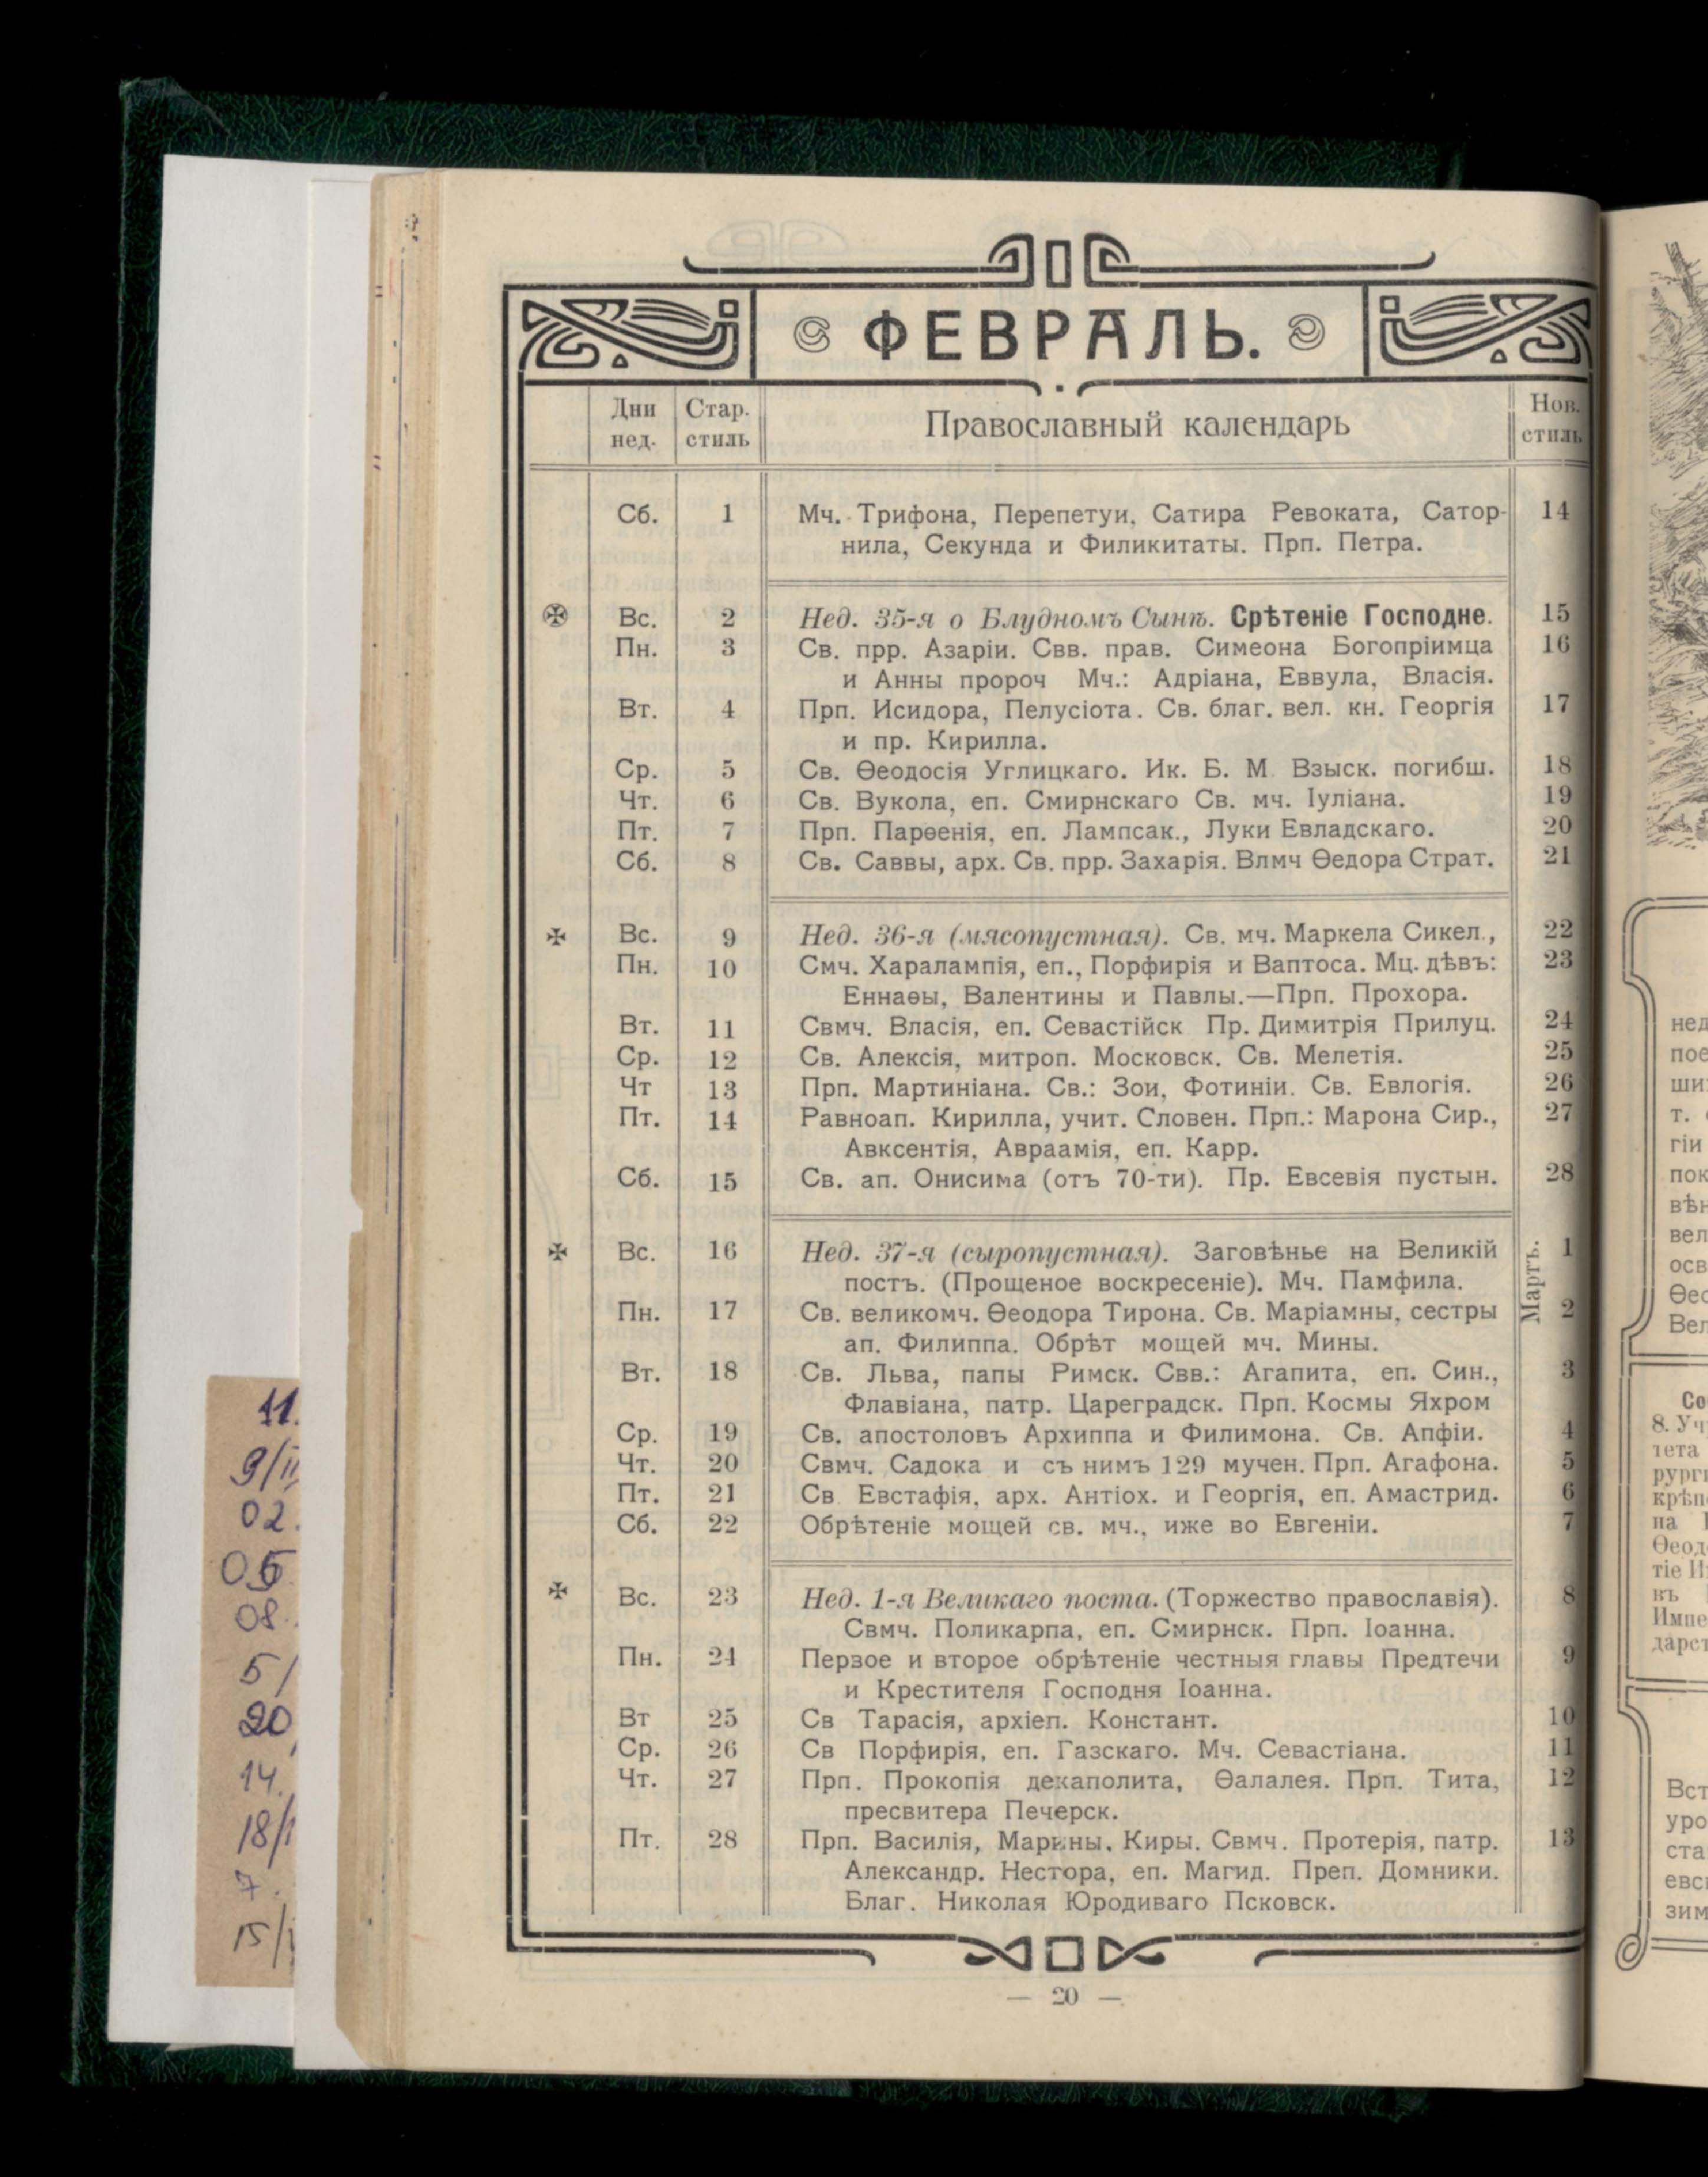 ФЕВРАЛЬ.
Дни нед. Стар. стиль Православный календарь Нов. стиль
Сб. 1 Мч. Трифона, Перепетуи, Сатира Ревоката, Сатор- 14
нила, Секунда и Филикитаты. Прп. Петра.
Вс. 2 Нед. 35-я о Блудномъ Сынѣ. Срѣтеніе Господне. 15
Пн. 3 Св. прр. Азаріи. Свв. прав. Симеона Богопріимца 16
и Анны пророч Мч.: Адріана, Еввула, Власія.
Вт. 4 Прп. Исидора, Пелусіота. Св. благ. вел. кн. Георгія 17
и пр. Кирилла.
Ср. 5 Св. Ѳеодосія Углицкаго. Ик. Б. М. Взыск. погибш. 18
Чт. 6 Св. Вукола, еп. Смирнскаго Св. мч. Іуліана. 19
Пт. 7 Прп. Парѳенія, еп. Лампсак., Луки Евладскаго. 20
Сб. 8 Св. Саввы, арх. Св. прр. Захарія. Влмч Ѳедора Страт. 21
Вс. 9 Нед. 36-я (мясопустная). Св. мч. Маркела Сикел., 22
Пн. 10 Смч. Харалампія, еп., Порфирія и Ваптоса. Мц. дѣвъ: 23
Еннаѳы, Валентины и Павлы.—Прп. Прохора.
Вт. 11 Свмч. Власія, еп. Севастійск Пр. Димитрія Прилуц. 24
Ср. 12 Св. Алексія, митроп. Московск. Св. Мелетія. 25
Чт 13 Прп. Мартиніана. Св.: Зои, Фотиніи. Св. Евлогія. 26
Пт. 14 Равноап. Кирилла, учит. Словен. Прп.: Марона Сир., 27
Авксентія, Авраамія, еп. Карр.
Сб. 15 Св. ап. Онисима (отъ 70-ти). Пр. Евсевія пустын. 28
Вс. 16 Нед. 37-я (сыропустная). Заговѣнье на Великій Мартъ. 1
постъ. (Прощеное воскресеніе). Мч. Памфила.
Пн. 17 Св. великомч. Ѳеодора Тирона. Св. Маріамны, сестры 2
ап. Филиппа. Обрѣт мощей мч. Мины.
Вт. 18 Св. Льва, папы Римск. Свв.: Агапита, еп. Син., 3
Флавіана, патр. Цареградск. Прп. Космы Яхром
Ср. 19 Св. апостоловъ Архиппа и Филимона. Св. Апфіи. 4
Чт. 20 Свмч. Садока и съ нимъ 129 мучен. Прп. Агафона. 5
Пт. 21 Св Евстафія, арх. Антіох. и Георгія, еп. Амастрид. 6
Сб. 22 Обрѣтеніе мощей св. мч., иже во Евгеніи. 7
Вс. 23 Нед. 1-я Великаго поста. (Торжество православія). 8
Свмч. Поликарпа, еп. Смирнск. Прп. Іоанна.
Пн. 24 Первое и второе обрѣтеніе честныя главы Предтечи 9
и Крестителя Господня Іоанна.
Вт 25 Св Тарасія, архіеп. Констант. 10
Ср. 26 Св Порфирія, еп. Газскаго. Мч. Севастіана. 11
Чт. 27 Прп. Прокопія декаполита, Ѳалалея. Прп. Тита, 12
пресвитера Печерск.
Пт. 28 Прп. Василія, Марины, Киры. Свмч. Протерія, патр. 13
Александр. Нестора, еп. Магид. Преп. Домники.
Благ. Николая Юродиваго Псковск.
— 20 —
11.
9/II
02.
08.
5/
20
14.
18/
7.
15/